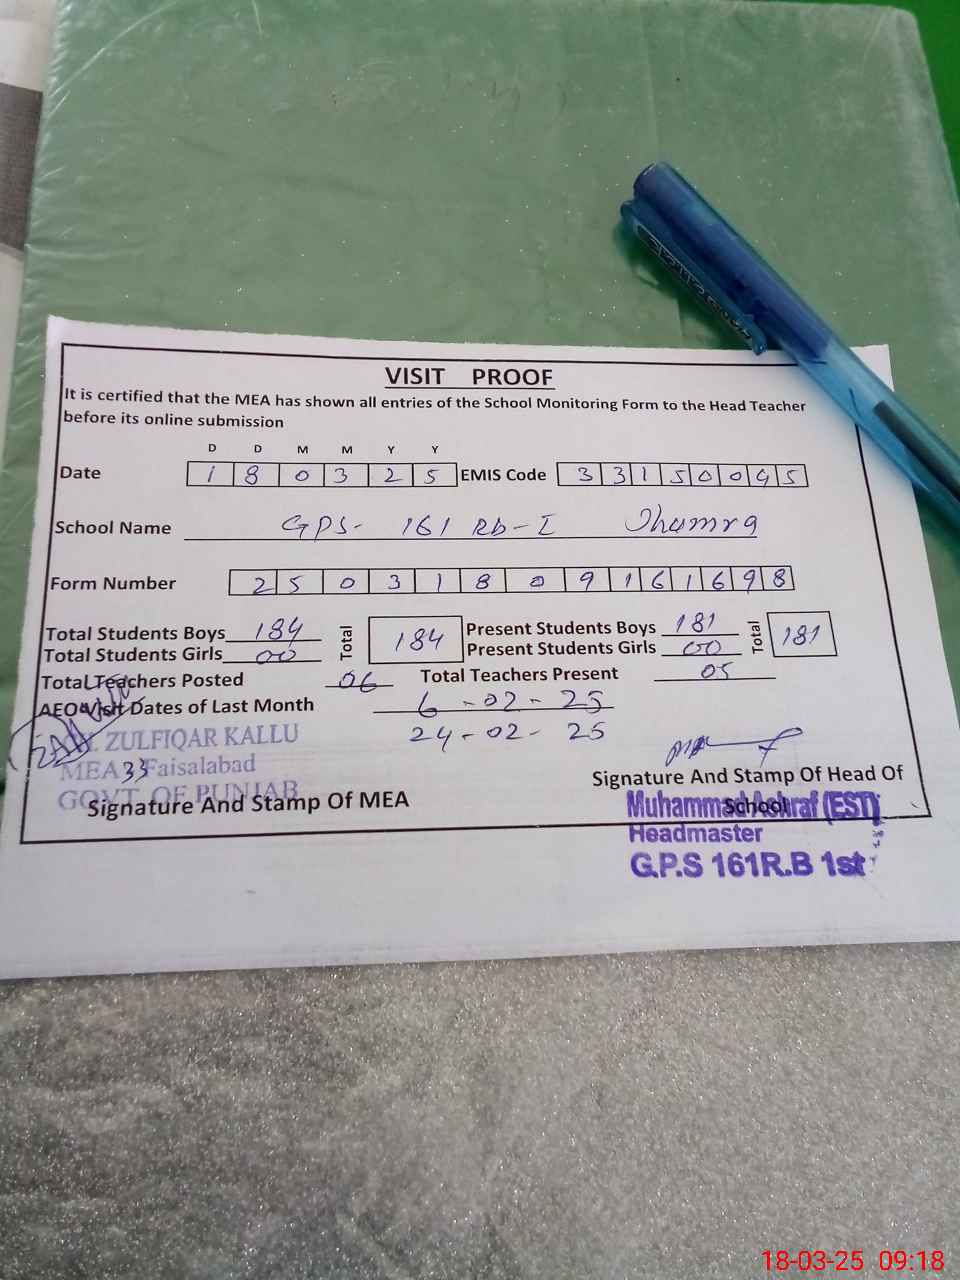 VISIT PROOF
It is certified that the MEA has shown all entries of the School Monitoring Form to the Head Teacher
before its online submission
D D M M Y Y
Date 1 8 0 3 2 5 EMIS Code 3 3 1 5 0 0 4 5
School Name GPS- 161 Rb-I Jhumra
Form Number 2 5 0 3 1 8 0 9 1 6 1 6 9 8
Total Students Boys 184 Total 184 Present Students Boys 181 Total 181
Total Students Girls 00 Present Students Girls 00
Total Teachers Posted 06 Total Teachers Present 05
AEO Visit Dates of Last Month 6-02-25
24-02-25
ZULFIQAR KALLU
MEA 33 Faisalabad
GOVT OF PUNJAB
Signature And Stamp Of MEA
Signature And Stamp Of Head Of
School
Muhammad Ashraf (EST)
Headmaster
G.P.S 161R.B 1st
18-03-25 09:18